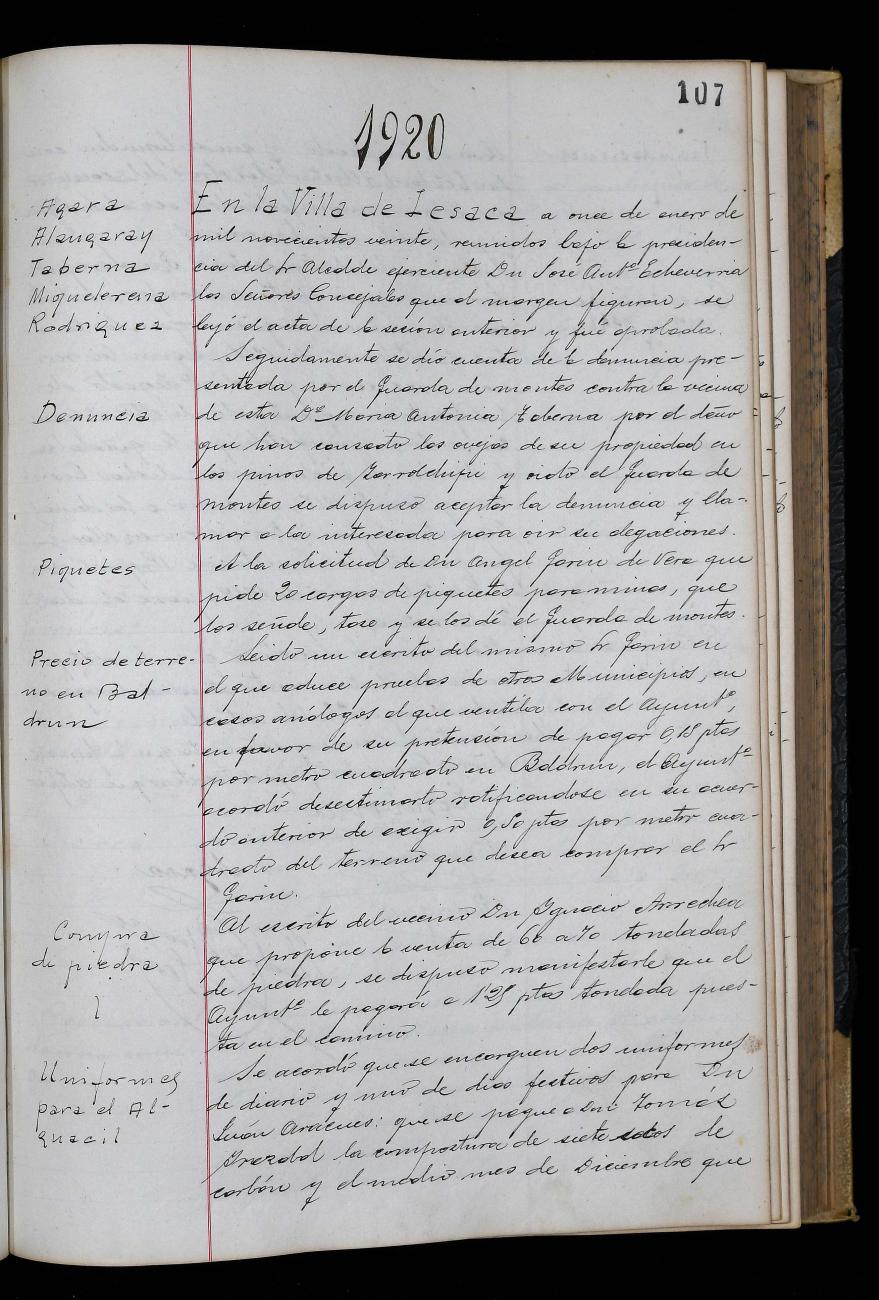 107
1920
Agara
Alzugaray
Taberna
Miquelerena
Rodriguez
En la Villa de Lesaca a once de enero de
mil novecientos veinte, reunidos bajo la presiden-
cia del Sr Alcalde ejerciente Dn José Antº Echeverria
los Señores Concejales que al margen figuran, se
leyó el acta de la sesión anterior y fué aprobada.
Seguidamente se dió cuenta de la denuncia pre-
sentada por el Guarda de montes contra la vecina
Denuncia
de esta Dª Maria Antonia Taberna por el daño
que han causado las ovejas de su propiedad en
los pinos de y oido el Guarda de
montes se dispuso aceptar la denuncia y lla-
mar a la interesada para oir su alegaciones.
Piquetes
A la solicitud de Dn Angel Garin de Vera que
pide 20 cargas de piquetes para minas, que
los señale, tase y se los dé el Guarda de montes.
Precio de terre-
no en Bal-
drun
Leido un escrito del mismo Sr Garin en
el que aduce pruebas de otros Municipios, en
casos análogos al que ventila con el Ayuntº,
en favor de su pretensión de pagar 0,18 ptas
por metro cuadrado en Baldrun, el Ayuntº
acordó desestimarlo ratificandose en su acuer-
do anterior de exigir 0,50 ptas por metro cua-
drado del terreno que desea comprar el Sr
Garin.
Compra
de piedra
Al escrito del vecino Dn Ignacio Arrechea
que propone la venta de 60 a 70 toneladas
de piedra, se dispuso manifestarle que el
Ayuntº le pagará a 1'25 ptas tonelada pues-
ta en el camino.
Uniformes
para el Al-
guacil
Se acordó que se encarguen dos uniformes
de diario y uno de dias festivos para Dn
Juán : que se pague a Dn Tomás
la compostura de siete de
carbón y el medio mes de Diciembre que